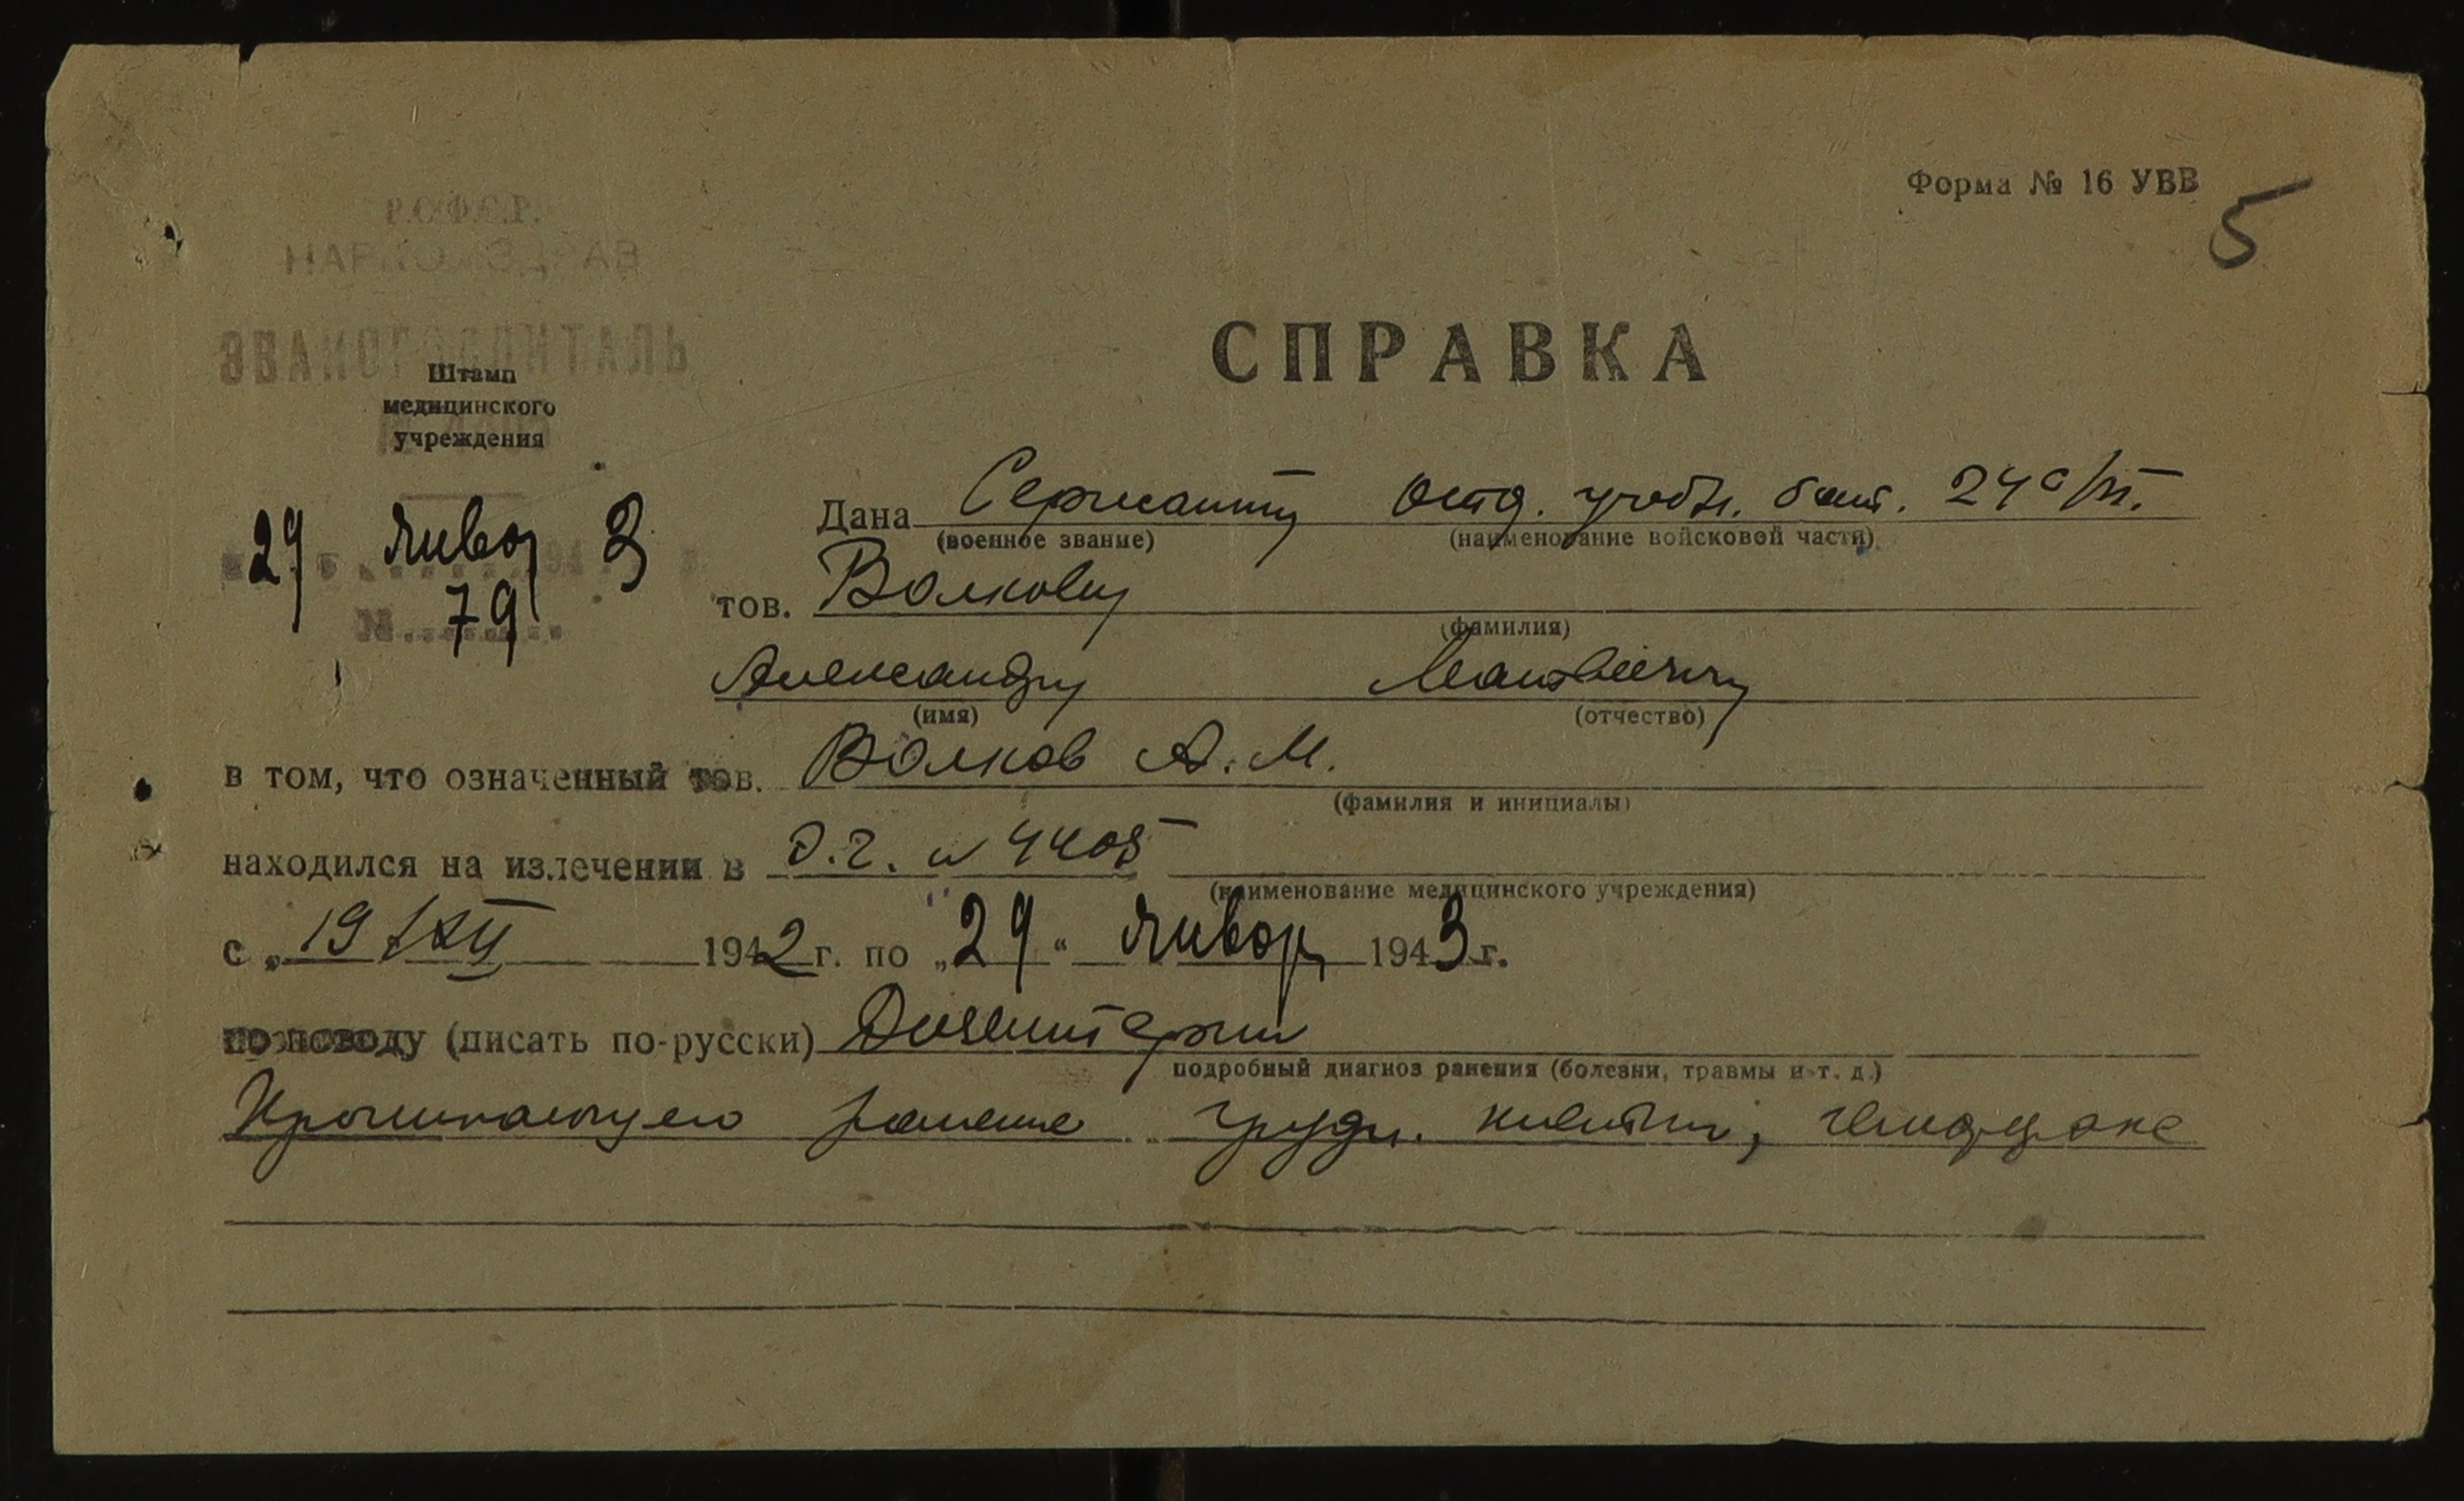 Форма № 16 УВВ
5
Р.С.Ф.С.Р.
НАРКОМЗДРАВ
ЭВАКОГОСПИТАЛЬ
СПРАВКА
Штамп
медицинского
учреждения
29 январ 3
№ 79
Дана Сержанту Отд. учебн. бат. 24 с/п.
(военное звание) (наименование войсковой части)
тов. Волкову
(фамилия)
Александру Матвеевичу
(имя) (отчество)
в том, что означенный тов. Волков А. М.
(фамилия и инициалы)
находился на излечении в Э.г. № 4405
(наименование медицинского учреждения)
с „19 XII 1942 г. по „29“ январ 1943 г.
по поводу (писать по-русски) Дизентерии
подробный диагноз ранения (болезни, травмы и т. д.)
Проникающего ранение грудн. клетки,